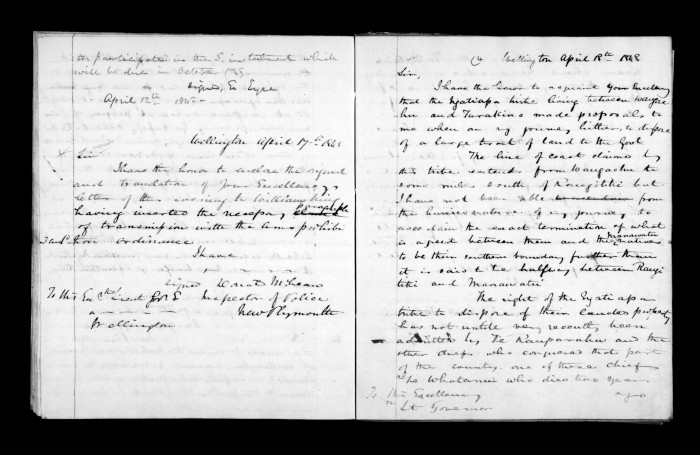 to participate in the 3. instalment which
will be due in October 1849.
signed, E Eyre
April 12th 1848 -
Wellington April 17th 1848
Sir
I have the honor to enclose the original
and translation of Your Excellency's
letter of this evening to William King
having inserted the necessary paragraph
of transmission with the Arms prohibi
tion ordinance
I have
signed Donald McLean
Inspector of Police
New Plymouth
To His Ex
Wellington
Wellington April 18th 1848
Sir,
I have the honor to acquaint Your Excellency
that the Ngatiapa tribe living between Wanga
nui and Turakina made proposals to
me when on my journey hither, to dispose
of a large tract of land to the Govt
The line of coast claimed by
this tribe extends from Wangaehu to
some miles south of Rangitiki but
I have not been able from
the hurried nature of my journey to
ascertain the exact termination of what
is agreed between them and the Manawatu natives
to be their southern boundary further than
it is said to be halfway between Rangi
tiki and Manawatu
The right of the Ngatiapa
tribe to dispose of these lands
has not until very recently been
admitted by Te Rauparaha and the
other chiefs who conquered that part
of the country. one of these chiefs
Te Whatanui who died two years
ago
To His Excellency
Lt Governor